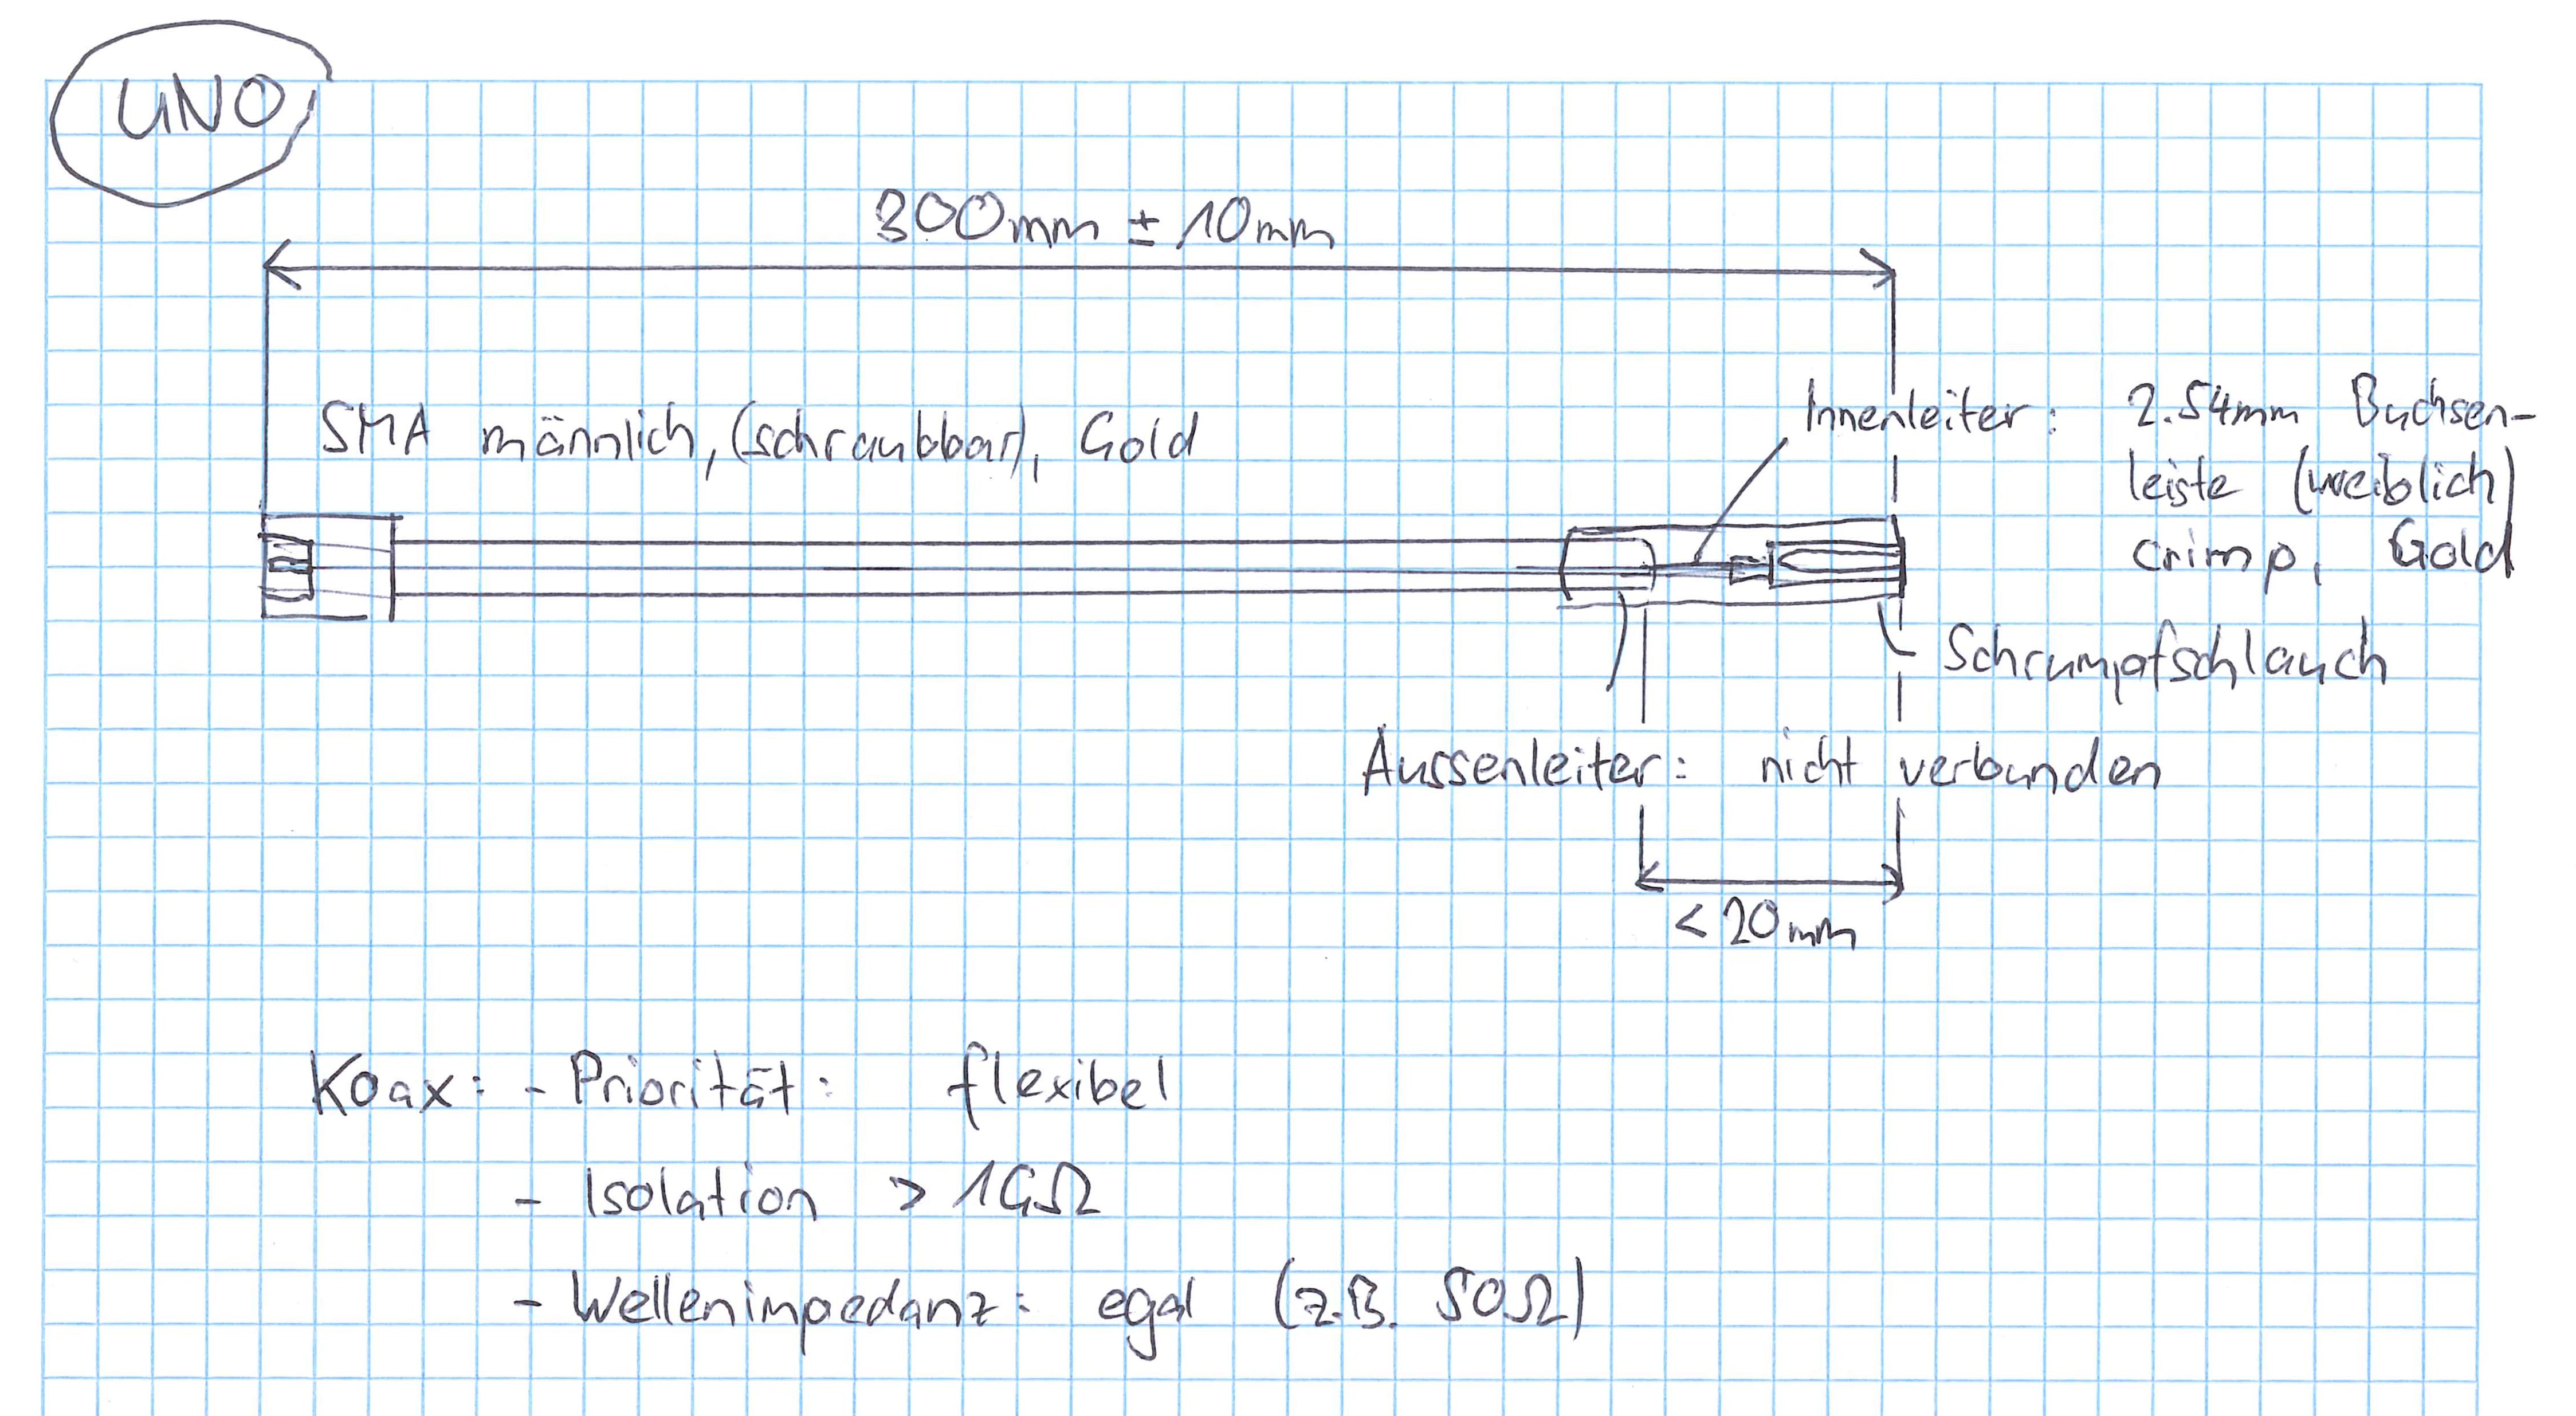 UNO
300mm ± 10mm
SMA männlich, (schraubbar), Gold
Innenleiter: 2.54mm Buchsen-
leiste (weiblich)
crimp, Gold
Schrumpfschlauch
Aussenleiter: nicht verbunden
< 20mm
Koax: - Priorität: flexibel
- Isolation > 1GΩ
- Wellenimpedanz: egal (z.B. 50Ω)